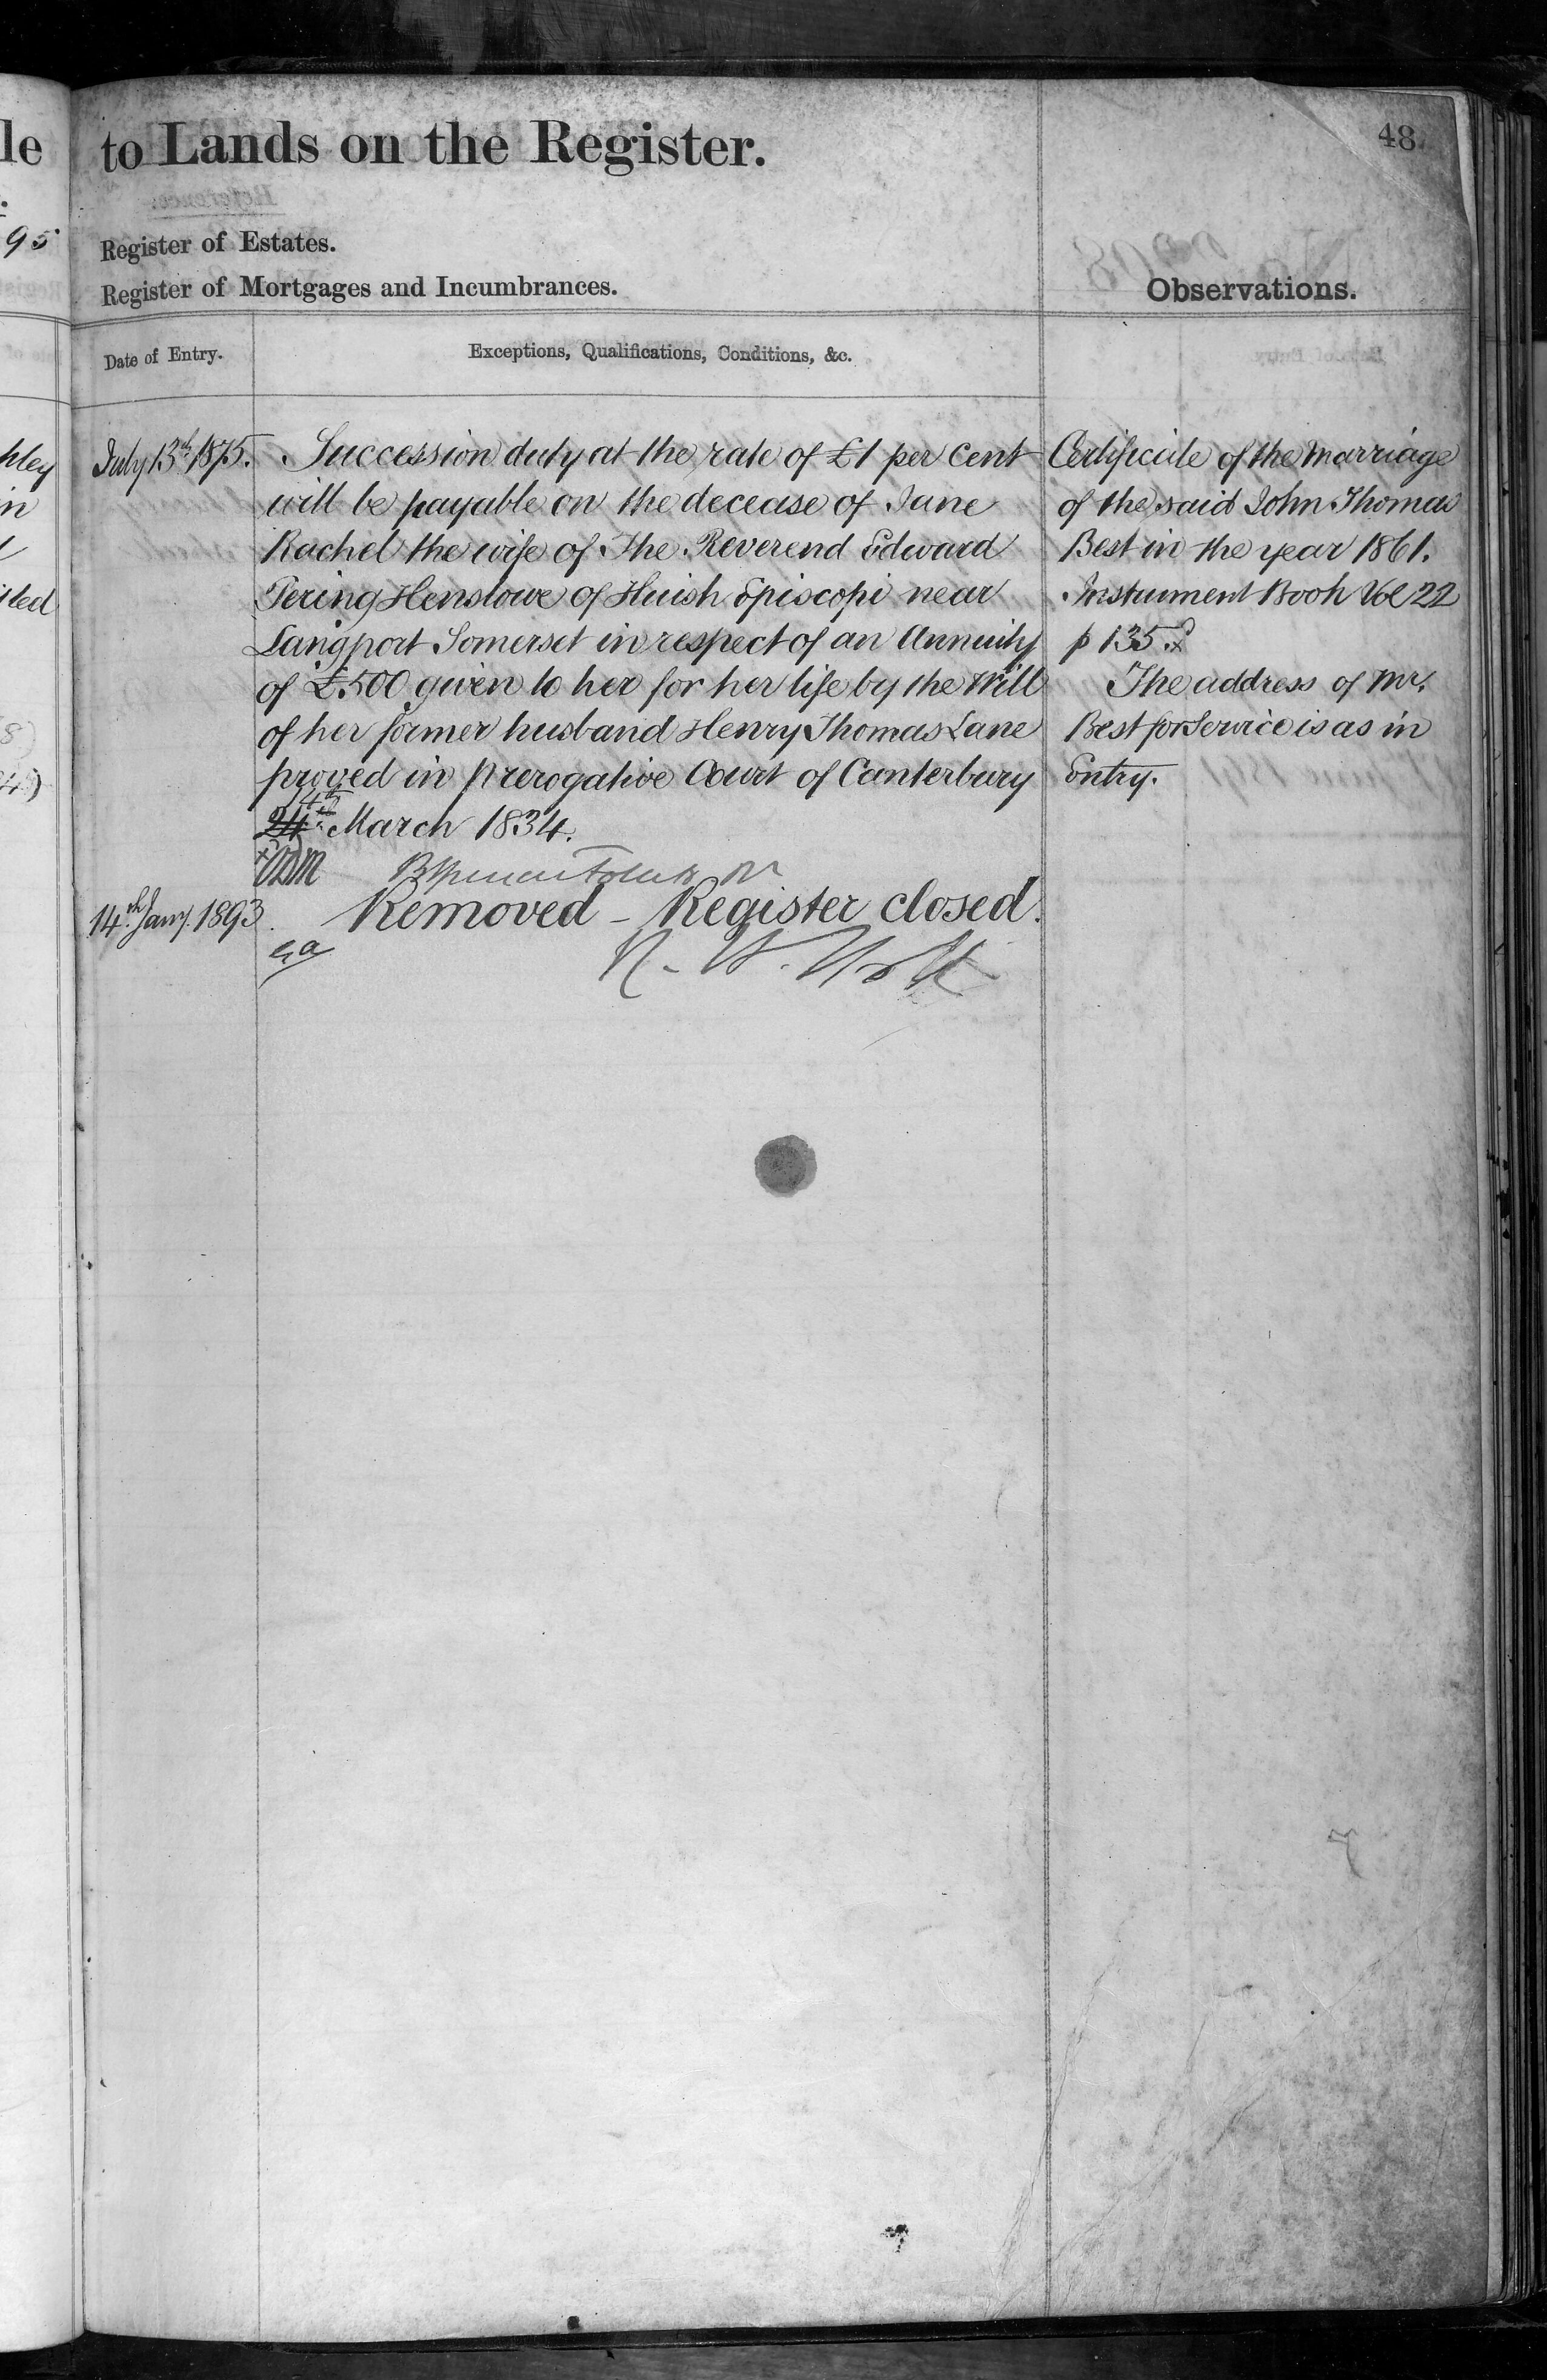 le
95
hley
in
sted
to Lands on the Register.
48
Register of Estates.
Register of Mortgages and Incumbrances.
Observations.
Date of Entry.
Exceptions, Qualifications, Conditions, &c.
July 13th 1875.
Succession duty at the rate of £1 per cent
will be payable on the decease of Jane
Rachel the wife of The Reverend Edward
Pering Henslowe of Huish Episcopi near
Langport Somerset in respect of an Annuity
of £500 given to her for her life by the Will
of her former husband Henry Thomas Lane
proved in Prerogative Court of Canterbury
14th
24th March 1834.
14th Jany. 1893.
Removed - Register closed.
Certificate of the marriage
of the said John Thomas
Best in the year 1861.
Instrument Book Vol 22
p 135.
The address of Mr.
Best for Service is as in
Entry.